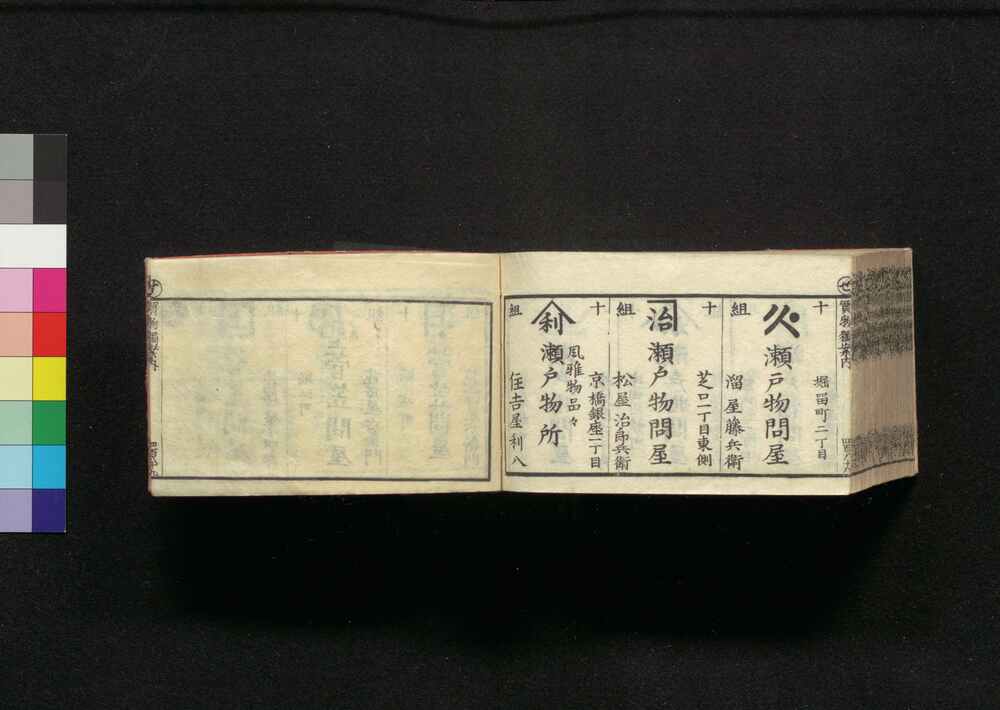 十
堀留町二丁目
瀬戸物問屋
組
溜屋藤兵衛
十
芝口一丁目東側
治
瀬戸物問屋
組
松屋治郎兵衛
十
京橋銀座一丁目
風雅物品々
利
瀬戸物所
組
住吉屋利八